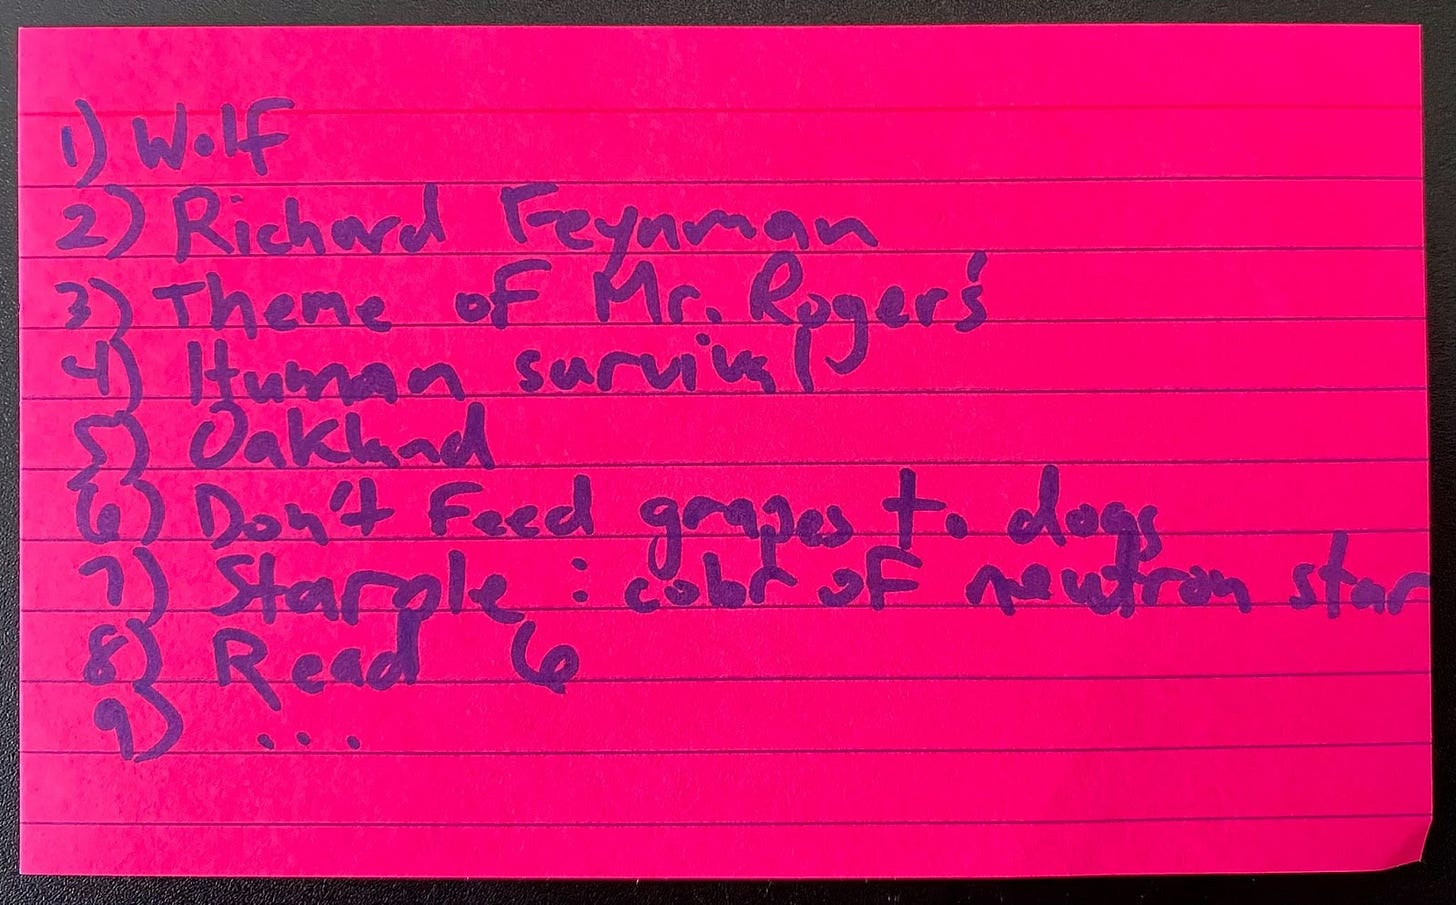 1) Wolf
2) Richard Feynman
3) Theme of Mr. Rogers'
4) Human survival
5) Oakland
6) Don't feed grapes to dogs
7) Starple : color of neutron star
8) Read 6
9) ...